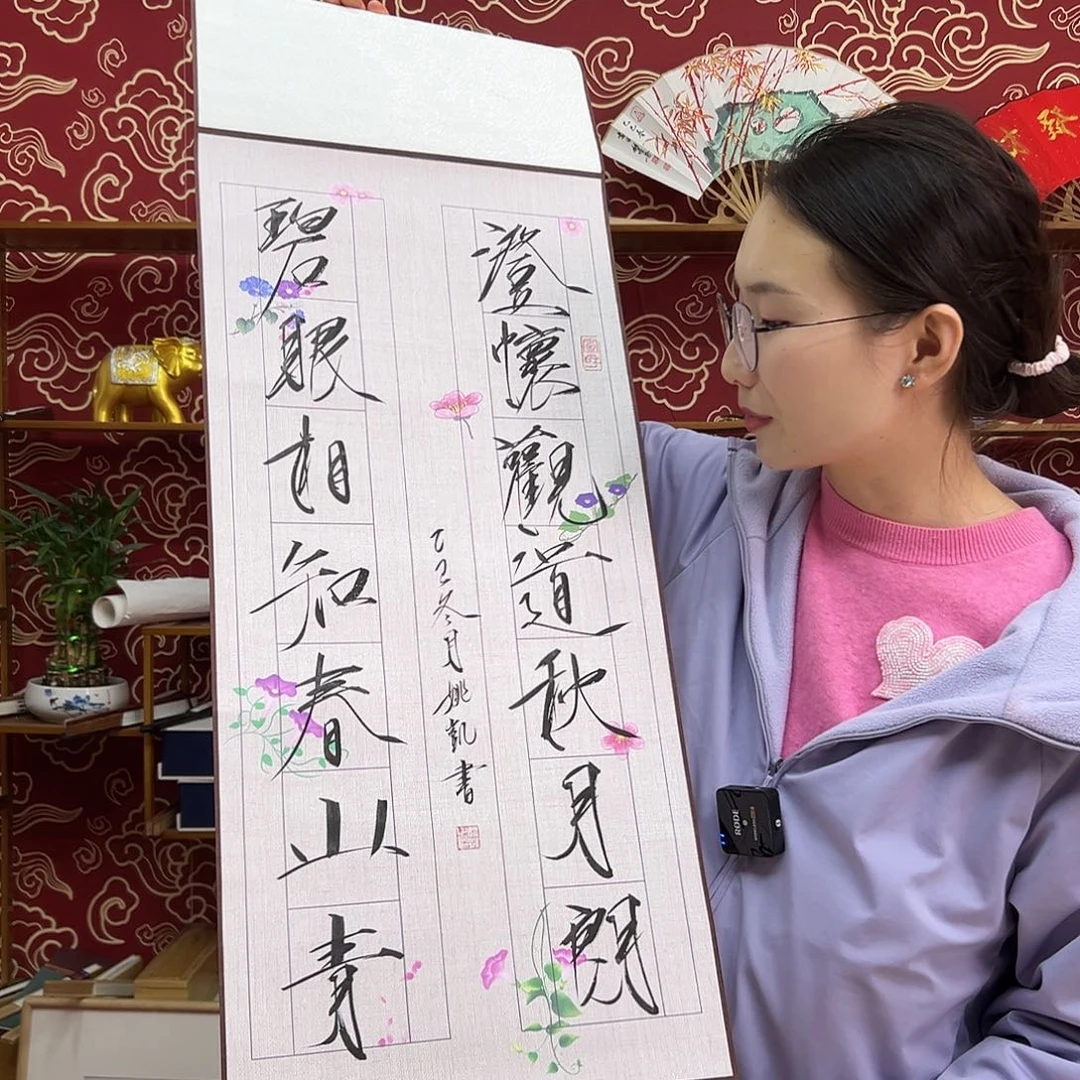 澄懷觀道秋月閒
碧眼相知春山青
乙巳冬月姚凱書
RODE
發